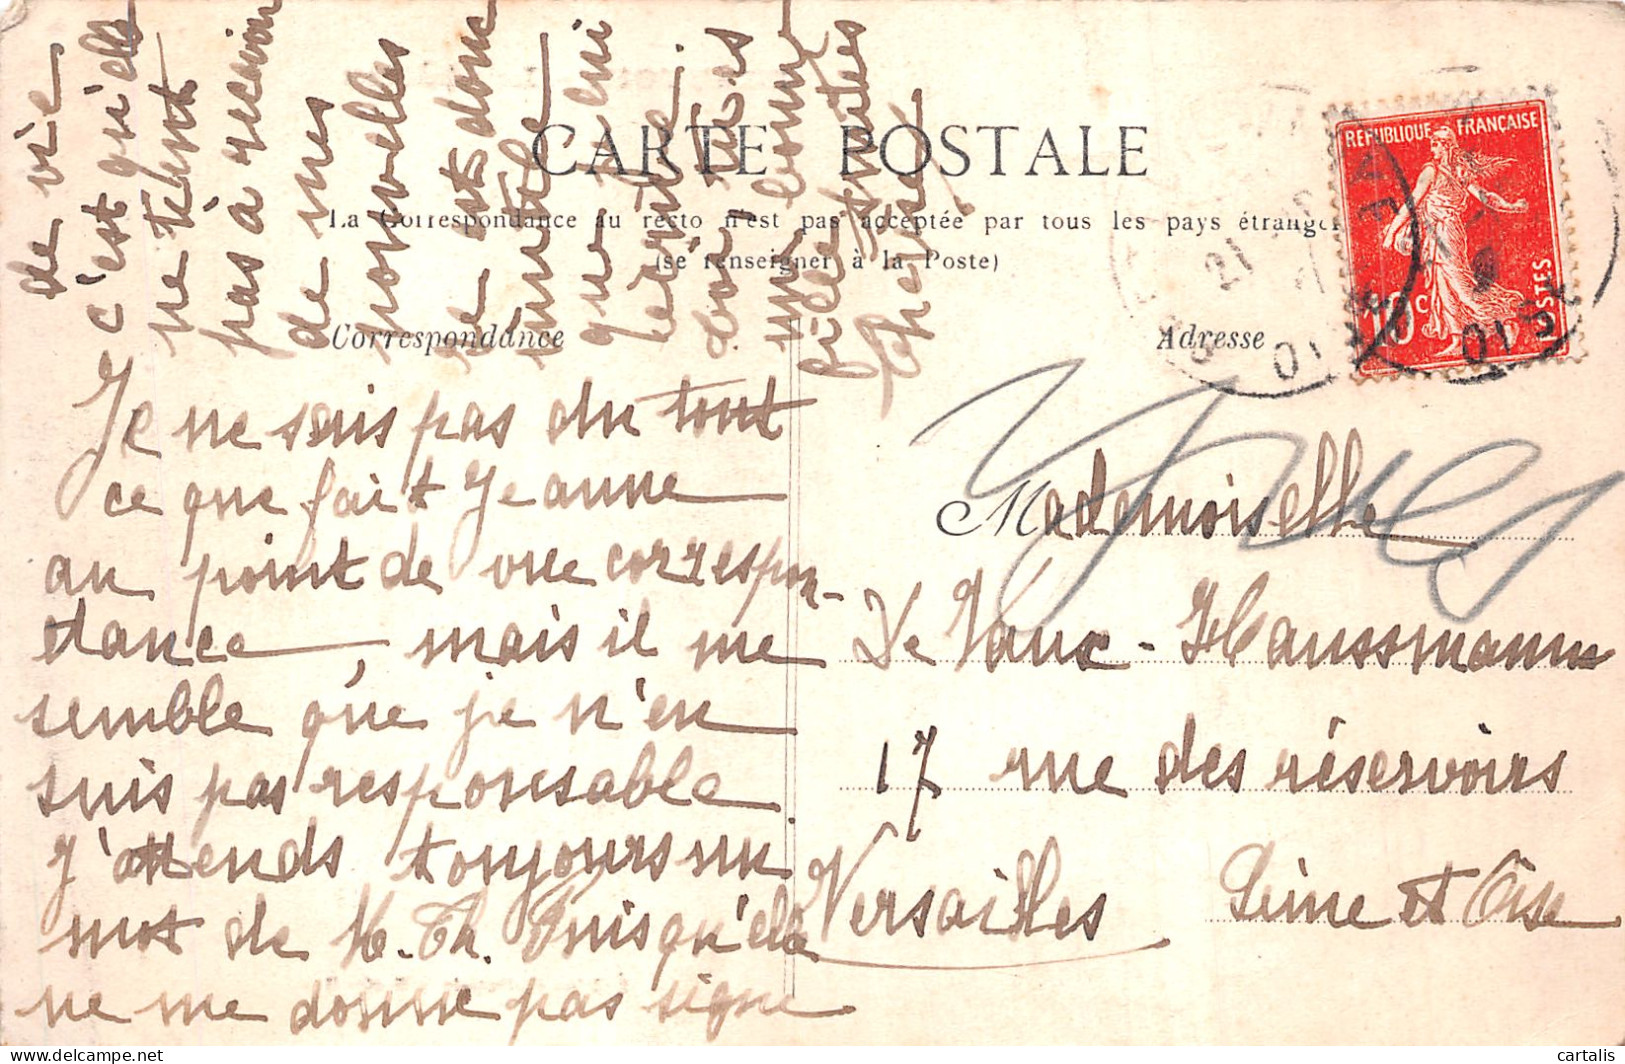 CARTE POSTALE
La Correspondance au recto n'est pas acceptée par tous les pays étrangers
(se renseigner à la Poste)
Correspondance
Adresse
REPUBLIQUE FRANÇAISE
10c
POSTES
Je ne sais pas du tout
ce que fait Jeanne
au point de vue correspon-
dance, mais il me
semble que je n'en
suis pas responsable
J'attends toujours un
mot de M. Th. Puisqu'elle
ne me donne pas signe
de vie
c'est qu'elle
ne tient
pas à recevoir
de mes
nouvelles
inutile
que
bonne
Thérèse
Mademoiselle
De Vaux-Haussmann
17 rue des réservoirs
Versailles Seine et Oise
cartalis